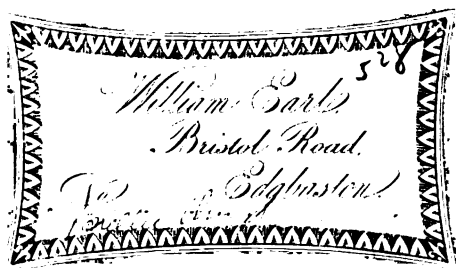 528
William Earl.
Bristol Road.
Edgbaston.
No